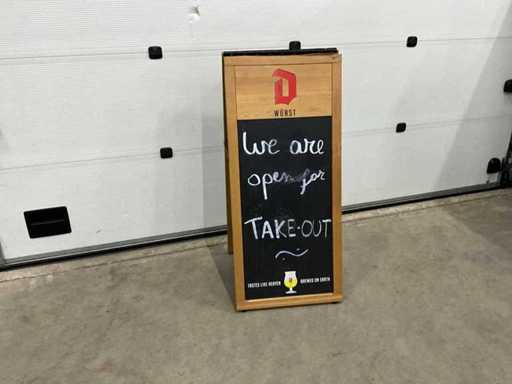 D
WÖRST
We are
open for
TAKE-OUT
TASTES LIKE HEAVEN
BREWED ON EARTH